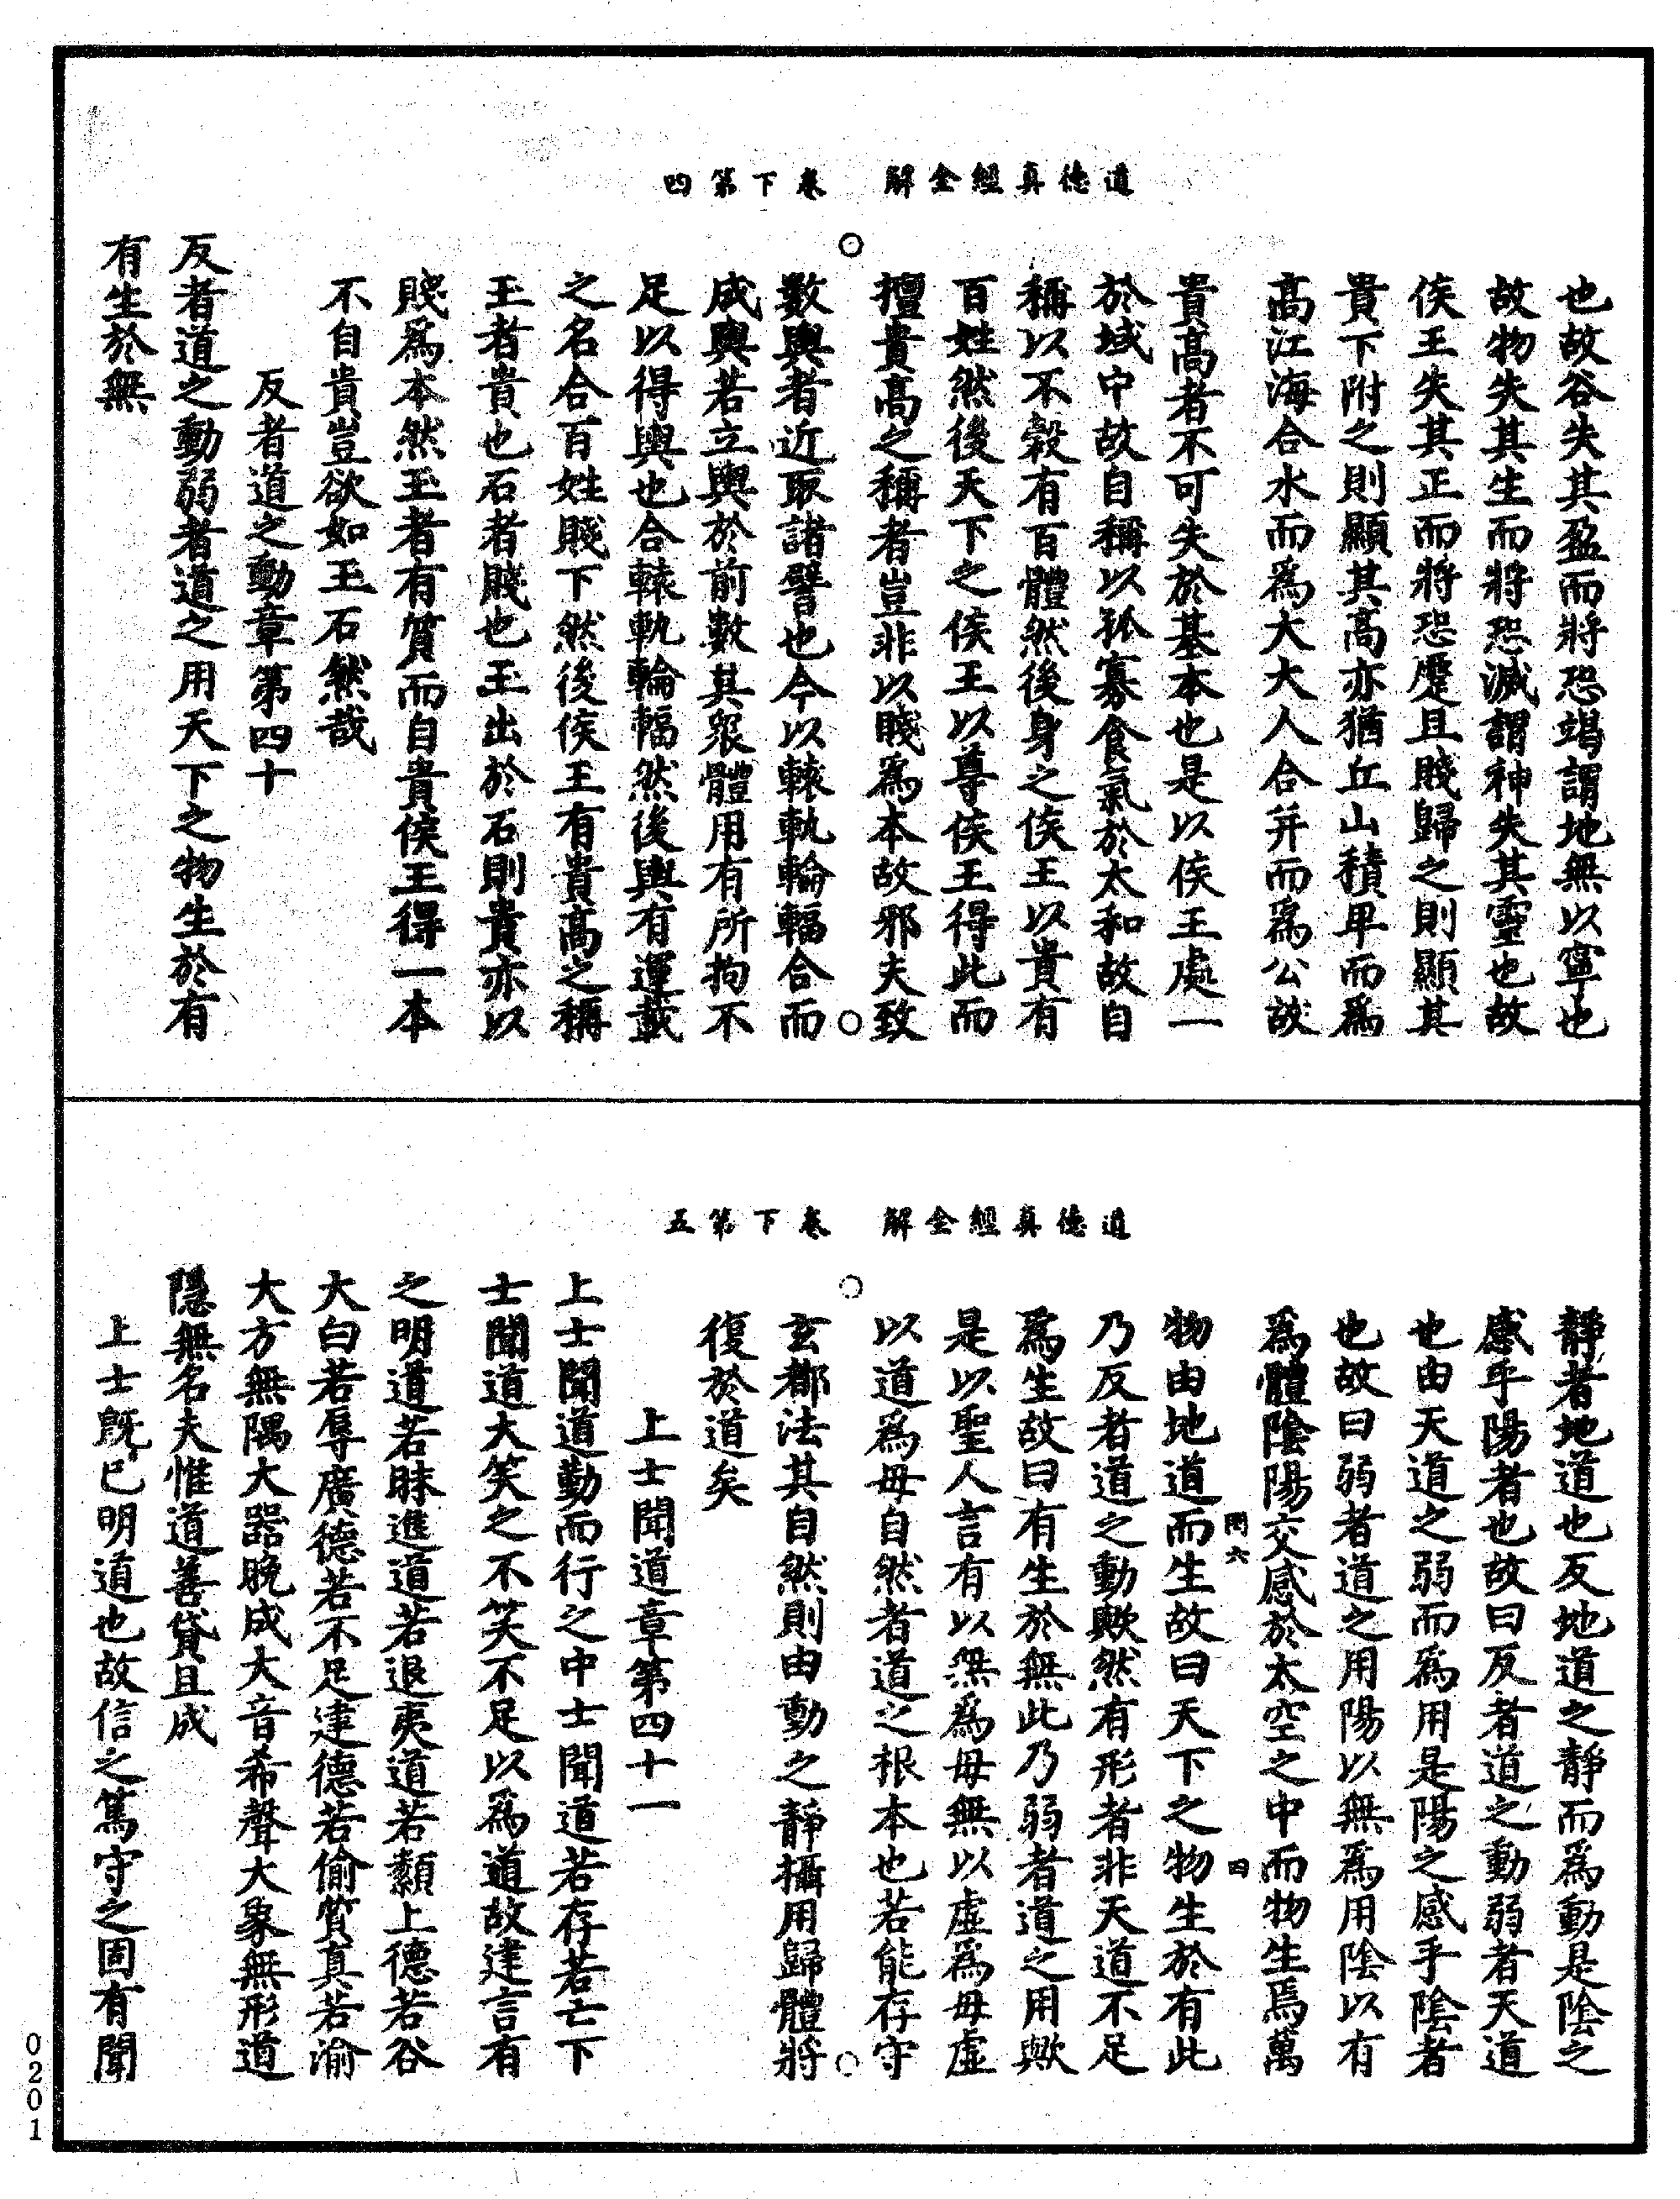 道德真經全解 卷下第四
也故谷失其盈而將恐竭謂地無以寧也
故物失其生而將恐滅謂神失其靈也故
侯王失其正而將恐蹷且賤歸之則顯其
貴下附之則顯其高亦猶丘山積卑而爲
高江海合水而爲大大人合并而爲公故
貴高者不可失於基本也是以侯王處一
於域中故自稱以孤寡食氣於太和故自
稱以不穀有百體然後身之侯王以貴有
百姓然後天下之侯王以尊侯王得此而
擅貴高之稱者豈非以賤爲本故邪夫致
數輿者近取諸譬也今以轅軌輪輻合而
成輿若立輿於前數其衆體用有所拘不
足以得輿也合轅軌輪輻然後輿有運載
之名合百姓賤下然後侯王有貴高之稱
王者貴也石者賤也玉出於石則貴亦以
賤爲本然玉者有質而自貴侯王得一本
不自貴豈欲如玉石然哉
反者道之動章第四十
反者道之動弱者道之用天下之物生於有
有生於無
道德真經全解 卷下第五
靜者地道也反地道之靜而爲動是陰之
感乎陽者也故曰反者道之動弱者天道
也由天道之弱而爲用是陽之感乎陰者
也故曰弱者道之用陽以無爲用陰以有
爲體陰陽交感於太空之中而物生焉萬
物由地道而生故曰天下之物生於有此
乃反者道之動歟然有形者非天道不足
爲生故曰有生於無此乃弱者道之用歟
是以聖人言有以無爲母無以虛爲母虛
以道爲母自然者道之根本也若能存守
玄都法其自然則由動之靜攝用歸體將
復於道矣
上士聞道章第四十一
上士聞道勤而行之中士聞道若存若亡下
士聞道大笑之不笑不足以爲道故建言有
之明道若昧進道若退夷道若纇上德若谷
大白若辱廣德若不足建德若偷質真若渝
大方無隅大器晚成大音希聲大象無形道
隱無名夫惟道善貸且成
上士旣已明道也故信之篤守之固有聞
0201